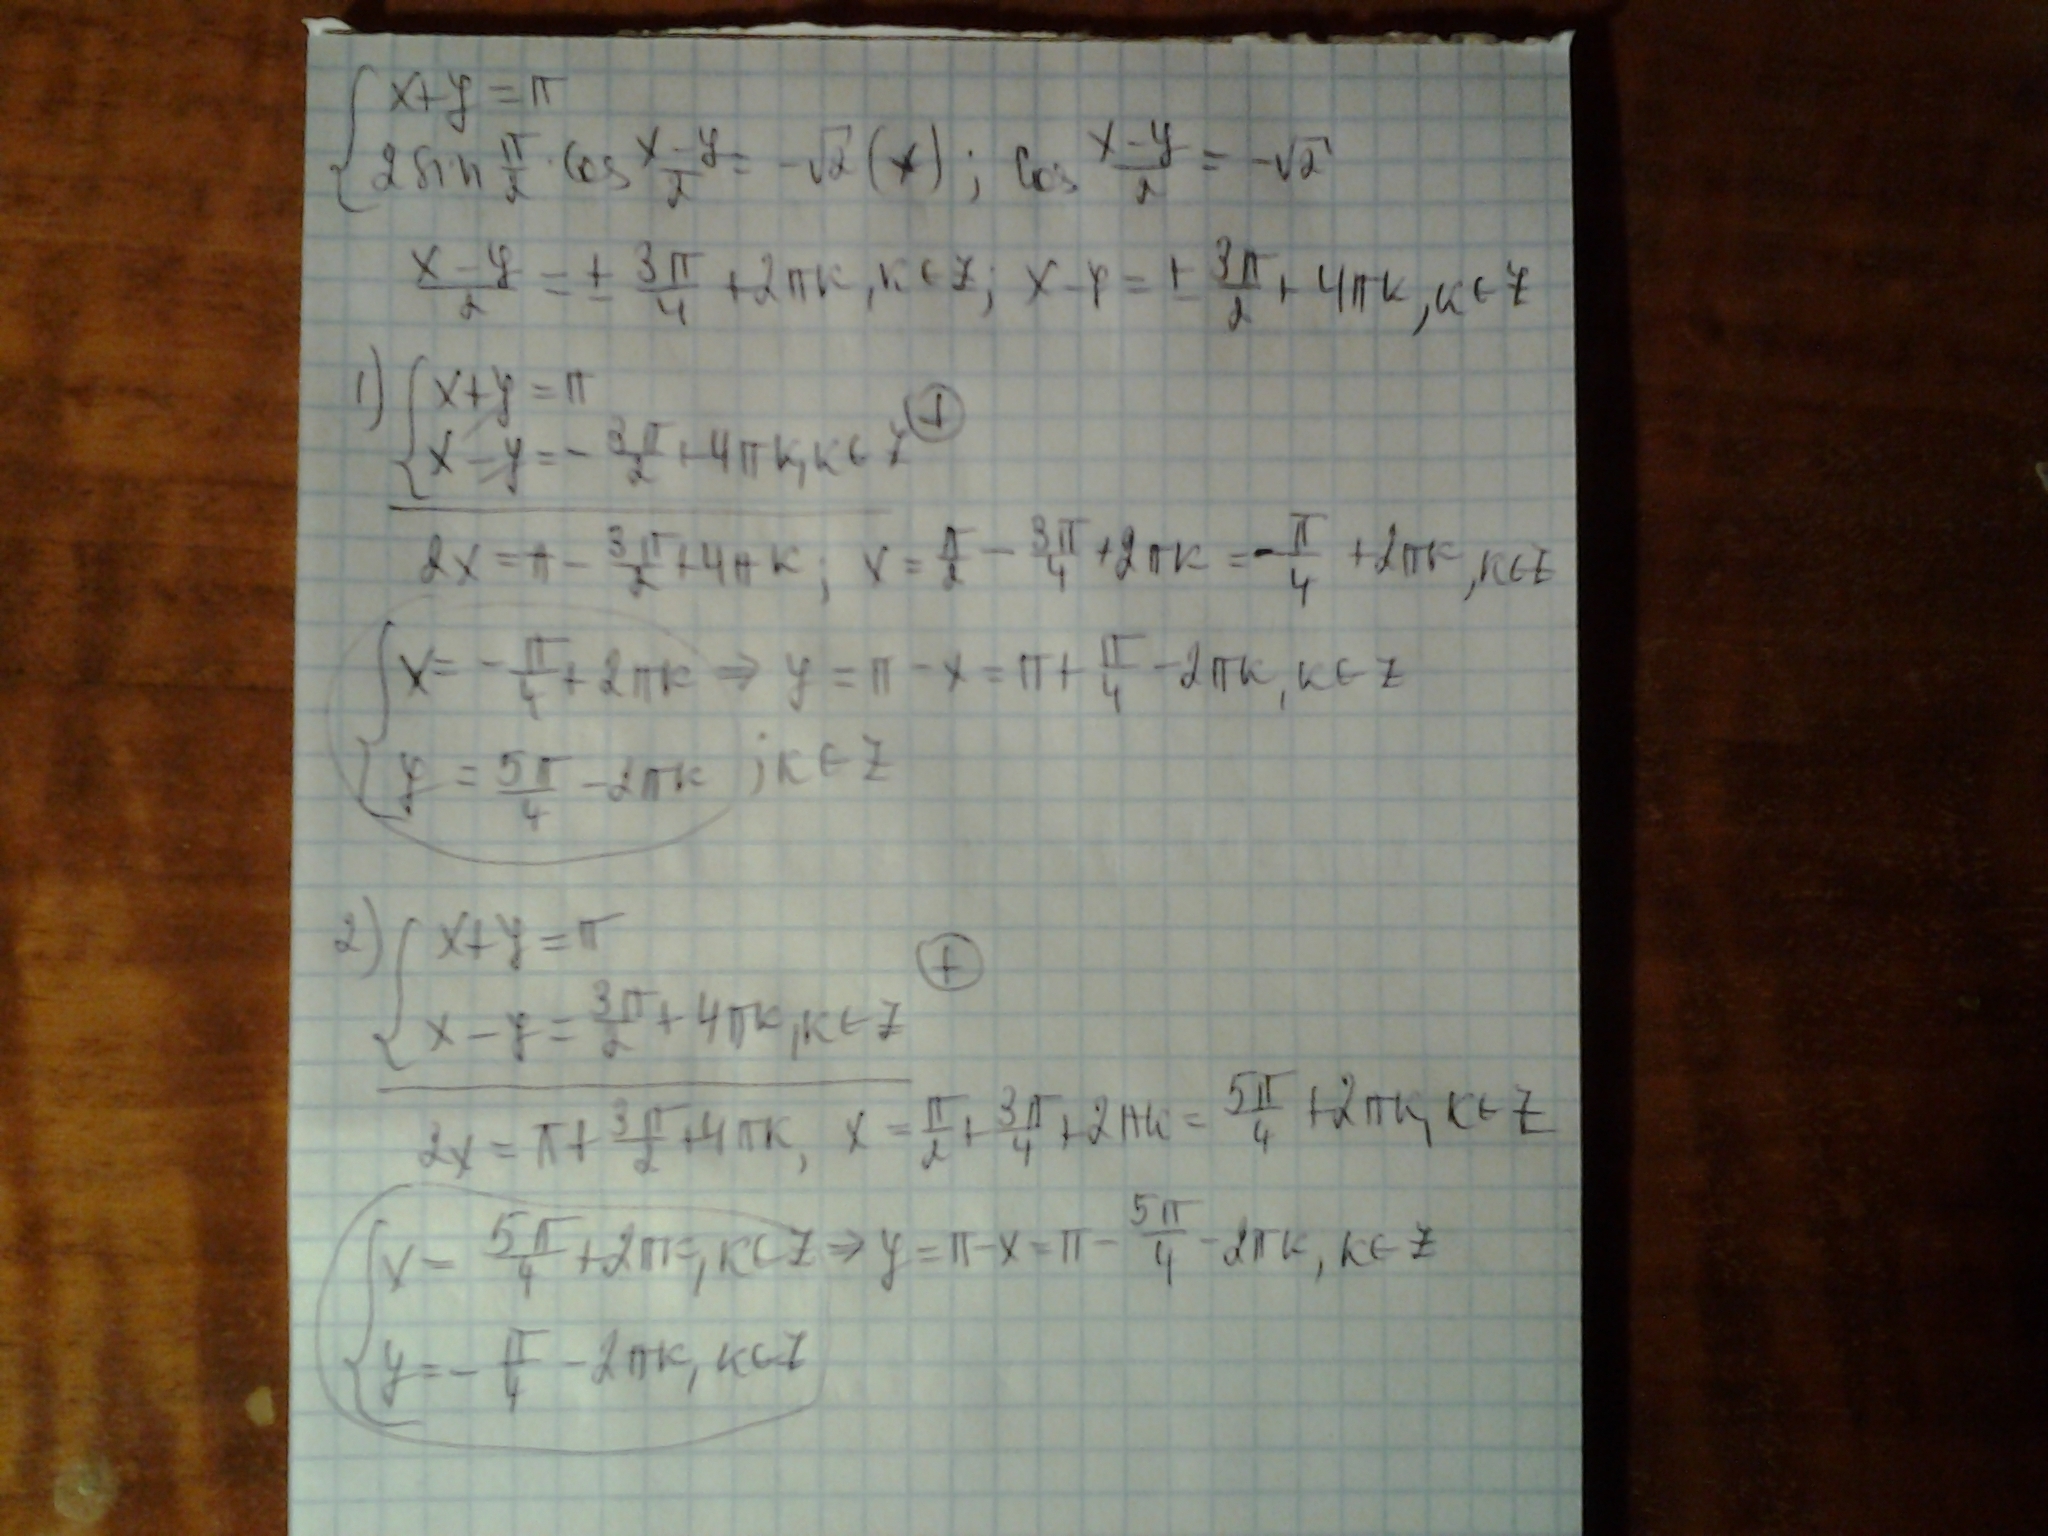 { x+y=π
2sin π/2 · cos (x-y)/2 = -√2 (*); cos (x-y)/2 = -√2
(x-y)/2 = ± 3π/4 + 2πk, k∈Z; x-y = ± 3π/2 + 4πk, k∈Z
1) { x+y=π
x-y = -3π/2 + 4πk, k∈Z (+)
2x = π - 3π/2 + 4πk; x = π/2 - 3π/4 + 2πk = -π/4 + 2πk, k∈Z
{ x = -π/4 + 2πk ⇒ y = π - x = π + π/4 - 2πk, k∈Z
y = 5π/4 - 2πk ; k∈Z
2) { x+y=π
x-y = 3π/2 + 4πk, k∈Z (+)
2x = π + 3π/2 + 4πk, x = π/2 + 3π/4 + 2πk = 5π/4 + 2πk, k∈Z
{ x = 5π/4 + 2πk, k∈Z ⇒ y = π - x = π - 5π/4 - 2πk, k∈Z
y = -π/4 - 2πk, k∈Z